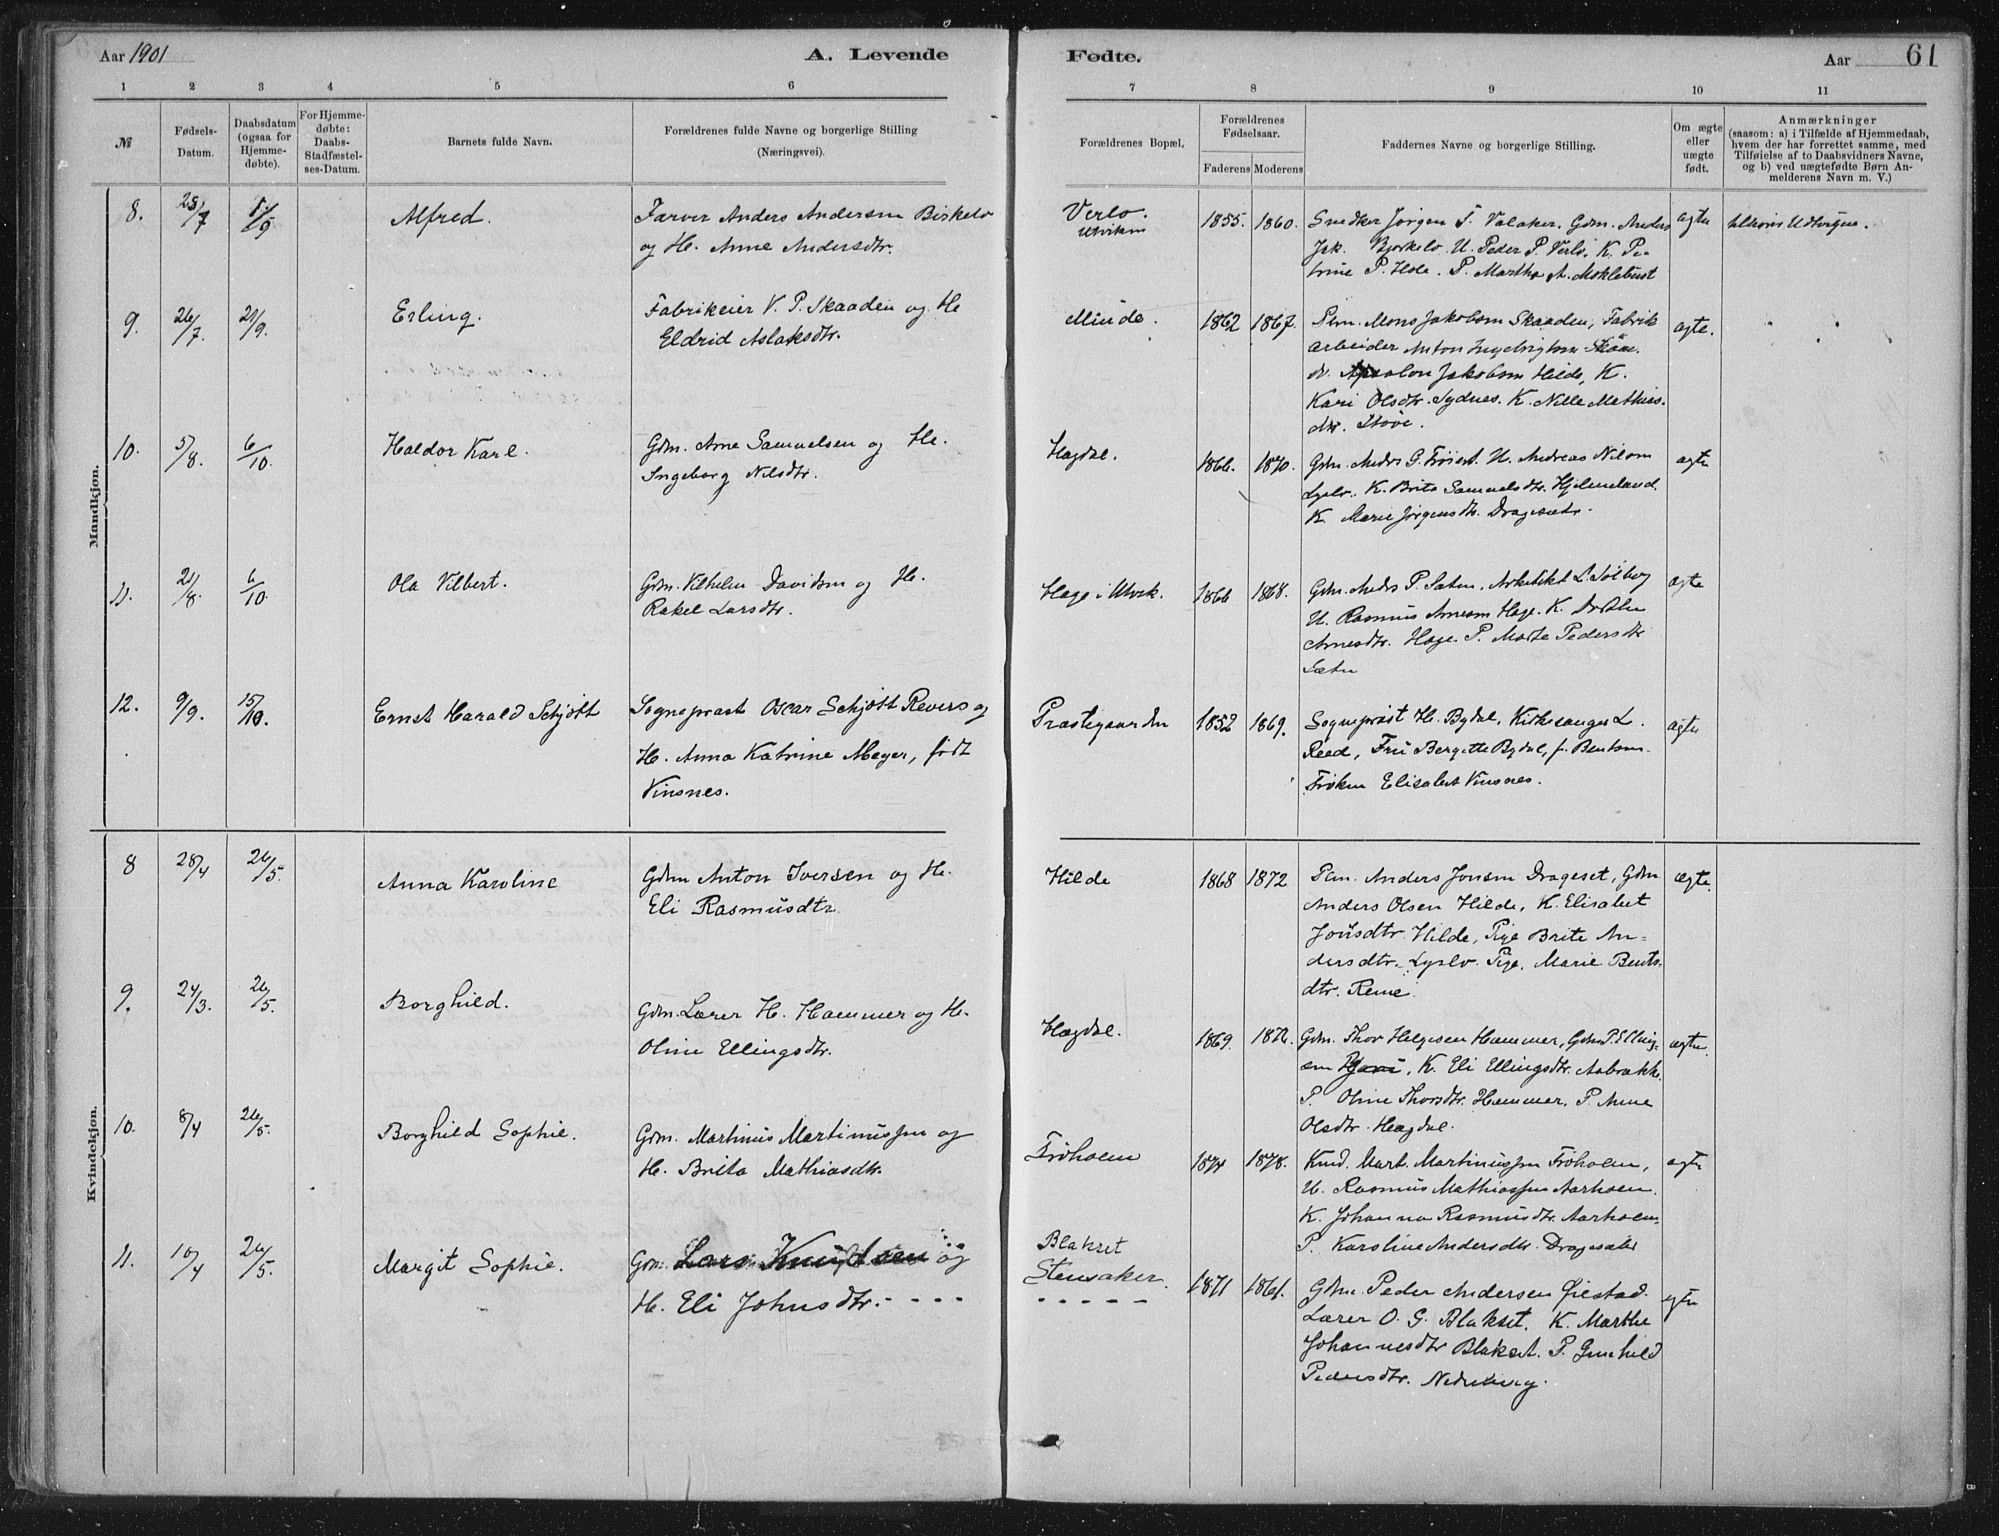 Aar 1901
A. Levende
Fødte.
Aar
61
1 2 3 4 5 6 7 8 9 10 11
№
Fødsels-
Datum.
Daabsdatum
(ogsaa for
Hjemme-
døbte).
For Hjemme-
døbte:
Daabs-
Stadfæstel-
ses-Datum.
Barnets fulde Navn.
Forældrenes fulde Navne og borgerlige Stilling
(Næringsvei).
Forældrenes Bopæl.
Forældrenes
Fødselsaar.
Faderens Moderens
Faddernes Navne og borgerlige Stilling.
Om ægte
eller
uægte
født.
Anmærkninger
(saasom: a) i Tilfælde af Hjemmedaab,
hvem der har forrettet samme, med
Tilføielse af to Daabsvidners Navne,
og b) ved uægtefødte Børn An-
melderens Navn m. V.)
Mandkjøn.
8.
Alfred.
Farver Anders Andersen Birkelo
og H. Anne Andersdtr.
Verlo.
Utviken
1855. 1860.
Snedker Jørgen T. Valaker. Gdm. Anders
Jak. Bjørkelo. U. Peder P. Verlo. K. Pe-
trine P. Hole. P. Martha A. Myklebust
ægte
9. 26/7 29/9
Erling.
Fabrikeier V. P. Skaaden og H.
Eldrid Aslaksdtr.
Minde.
1862 1867.
Pm. Mons Jakobsen Skaaden, Fabrik
arbeider Anton
Jakobsen Hilde, K.
Kari Olsdtr. Sydnes. K. Nille Mathias.
dtr.
ægte.
10. 5/8. 6/10
Haldor Karl.
Gdm. Arne Samuelsen og H.
Ingeborg Nilsdtr.
Hagdal.
1866. 1870.
Gdm. Anders G. Frøiset. U. Andreas Nilsen
Lyslo. K. Brita Samuelsdtr. Hjelmeland.
K. Marie Jørgensdtr. Dragesæter.
ægte
11. 21/8. 6/10
Ola Vilbert.
Gdm. Vilhelm Davidsen og H.
Rakel Larsdtr.
Hage i Utvik.
1866 1868.
Gdm. Anders P. Sæten, Arkitekt L. Solberg
U. Rasmus Arnesen Hage. K.
Arnesdtr. Hage. P. Marte Pedersdtr
Sæten
ægte
12. 9/9. 15/10.
Ernst Harald Schjøtt
Sogneprest Oscar Schjøtt Revers og
H. Anna Katrine Meyer, født
Vinsnes.
Præstegaarden
1852 1869.
Sogneprest H. Bydal, Kirkesanger L.
Reed, Fru Bergette Bydal, f. Bentsen.
Frøken Elisabet Vinsnes.
ægte
Kvindekjøn.
8 28/4 26/5.
Anna Karoline
Gdm Anton Iversen og H.
Eli Rasmusdtr.
Hilde
1868 1872
Pm. Anders Jonsen Drageset, Gdm
Anders Olsen Hilde, K. Elisabet
Jonsdtr. Hilde, Pige Brite An-
dersdtr. Lyslo. Pige, Marie Bents-
dtr. Reme.
ægte.
9. 24/3. 26/5.
Borghild.
Gdm. Lærer H. Hammer og H.
Oline Ellingsdtr.
Hagdal.
1869. 1872.
Gdm. Thor Helgesen Hammer, Gdm P. Elling-
sen, K. Eli Ellingsdtr. Aabrekke.
P. Oline Thorsdtr. Hammer, P. Anne
Olsdtr. Hagdal.
ægte.
10. 8/4 26/5.
Borghild Sophie.
Gdm. Martinus Martinussen og
H. Brita Mathiasdtr.
Frøholm
1874 1878.
Knud Mart. Martinussen Frøholm,
U. Rasmus Mathiassen Aarholen.
K. Johanna Rasmusdtr. Aarholen.
P. Karoline Andersdtr. Dragesæter
ægte
11. 10/4 26/5.
Margit Sophie.
Gdm. Lars Knudsen og
H. Eli Johnsdtr.
Blakset
Stensaker.
1871 1861.
Gdm. Peder Andersen Øiestad.
Lærer O. G. Blakset. K. Marthe
Johannesdtr Blakset. P. Gunhild
Pedersdtr. Nedreberg.
ægte